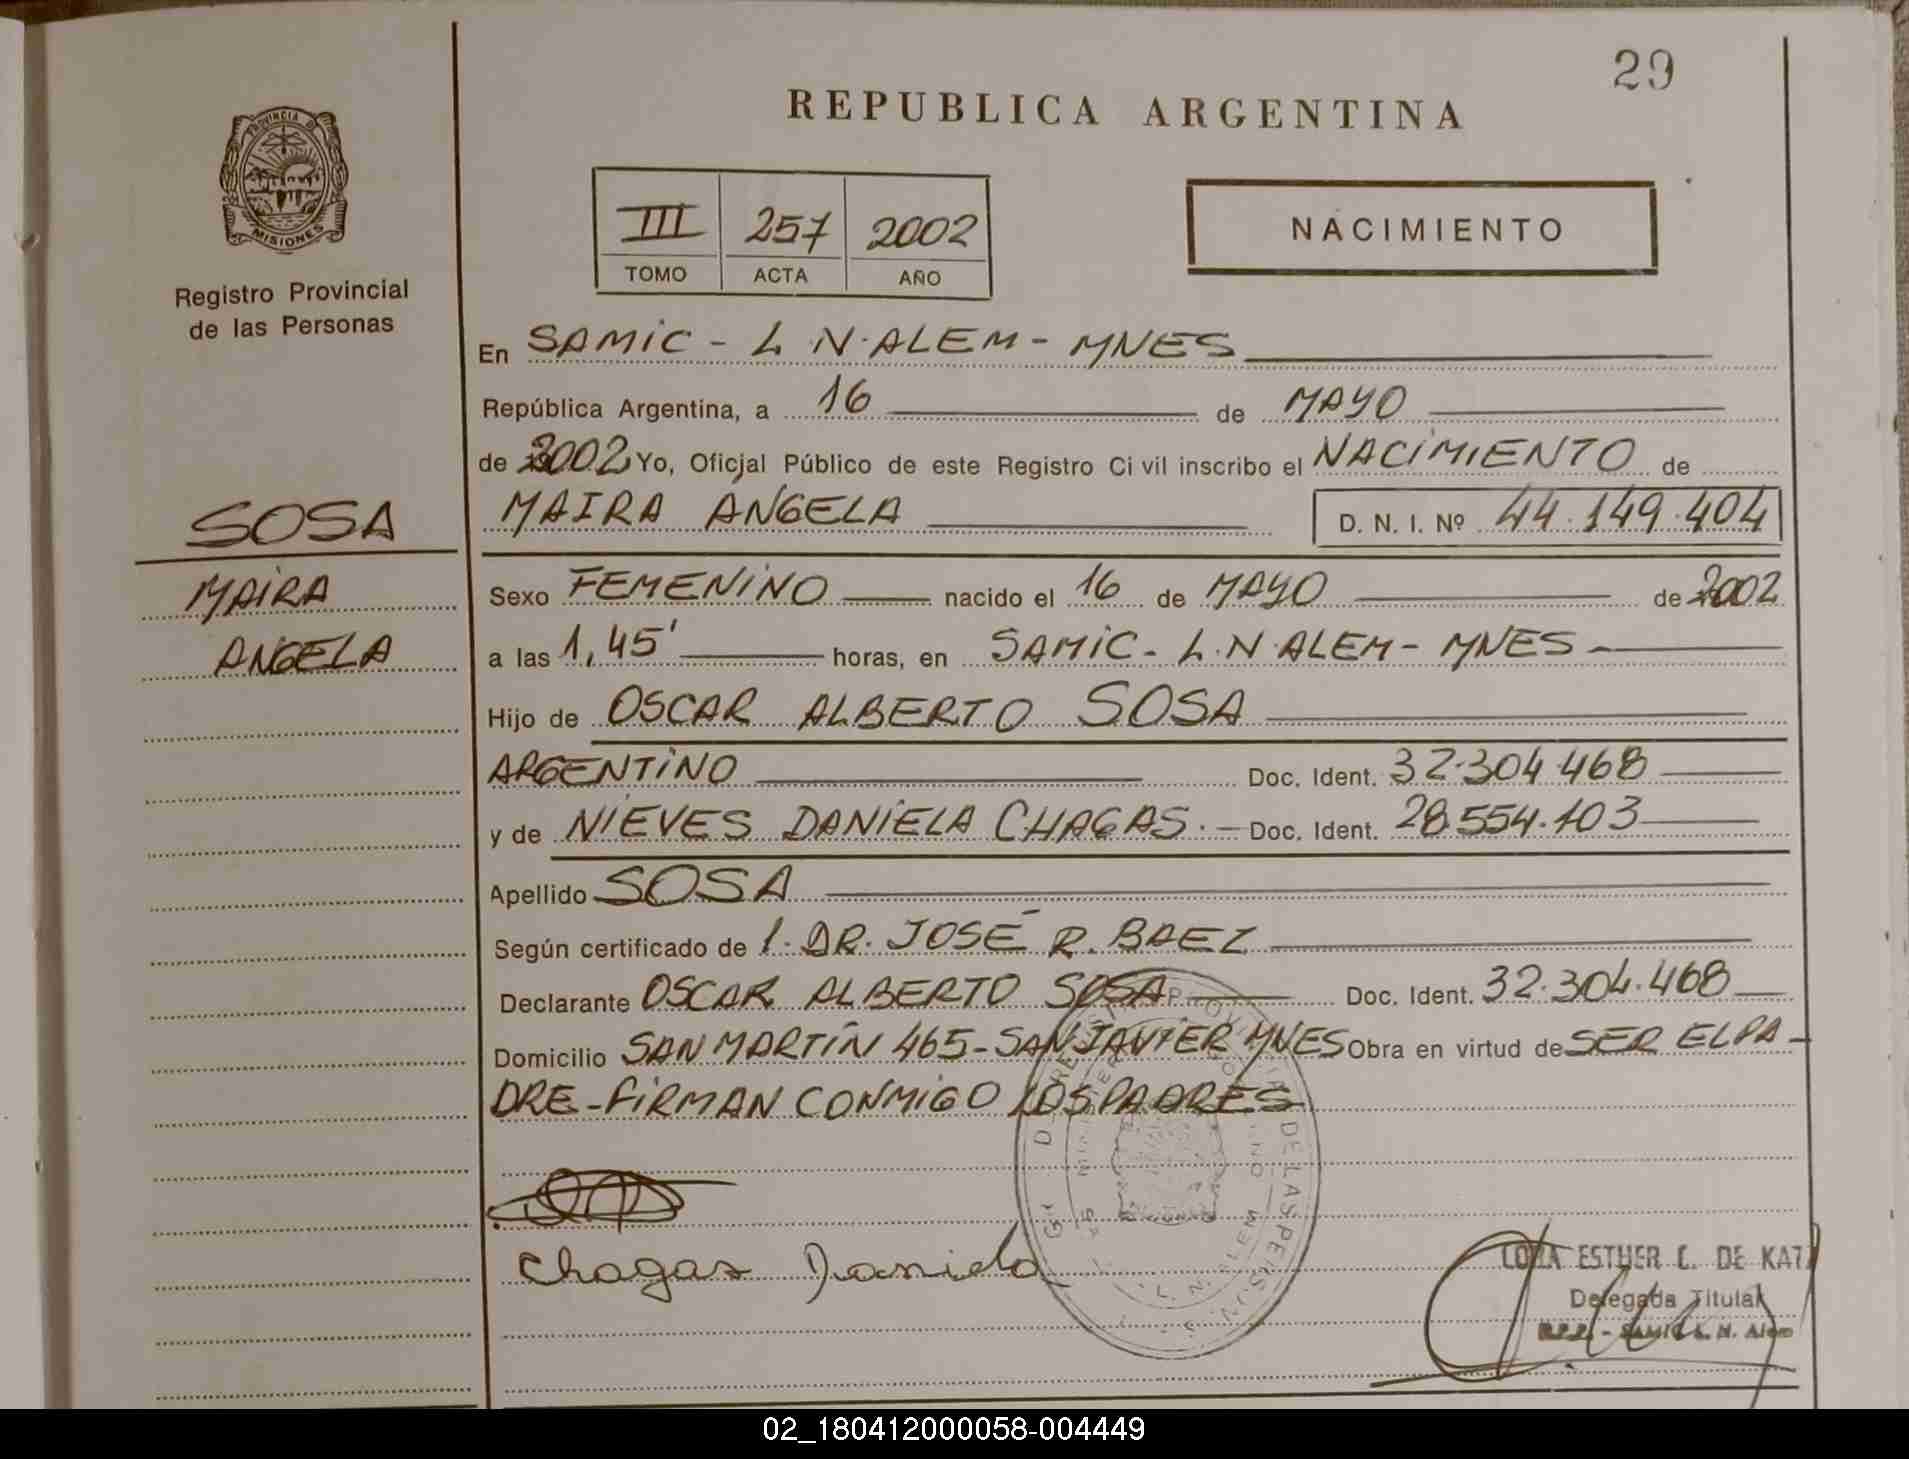 29
REPUBLICA ARGENTINA
PROVINCIA DE
MISIONES
Registro Provincial
de las Personas
III 257 2002
TOMO ACTA AÑO
NACIMIENTO
En SAMIC - L.N.ALEM - MNES
República Argentina, a 16 de MAYO
de 2002 Yo, Oficial Público de este Registro Civil inscribo el NACIMIENTO de
MAIRA ANGELA D. N. I. Nº 44.149.404
SOSA
MAIRA
ANGELA
Sexo FEMENINO nacido el 16 de MAYO de 2002
a las 1,45' horas, en SAMIC - L.N.ALEM - MNES
Hijo de OSCAR ALBERTO SOSA
ARGENTINO Doc. Ident. 32.304.468
y de NIEVES DANIELA CHAGAS.- Doc. Ident. 28.554.103
Apellido SOSA
Según certificado de l. DR. JOSÉ R. BAEZ
Declarante OSCAR ALBERTO SOSA Doc. Ident. 32.304.468
Domicilio SAN MARTÍN 465-SAN JAVIER MNES Obra en virtud de SER EL PA-
DRE-FIRMAN CONMIGO LOS PADRES
Chagas Daniela
ESTHER C. DE KATZ
Delegada Titular
R.P.P. - SAMIC L. N. Alem
02_180412000058-004449